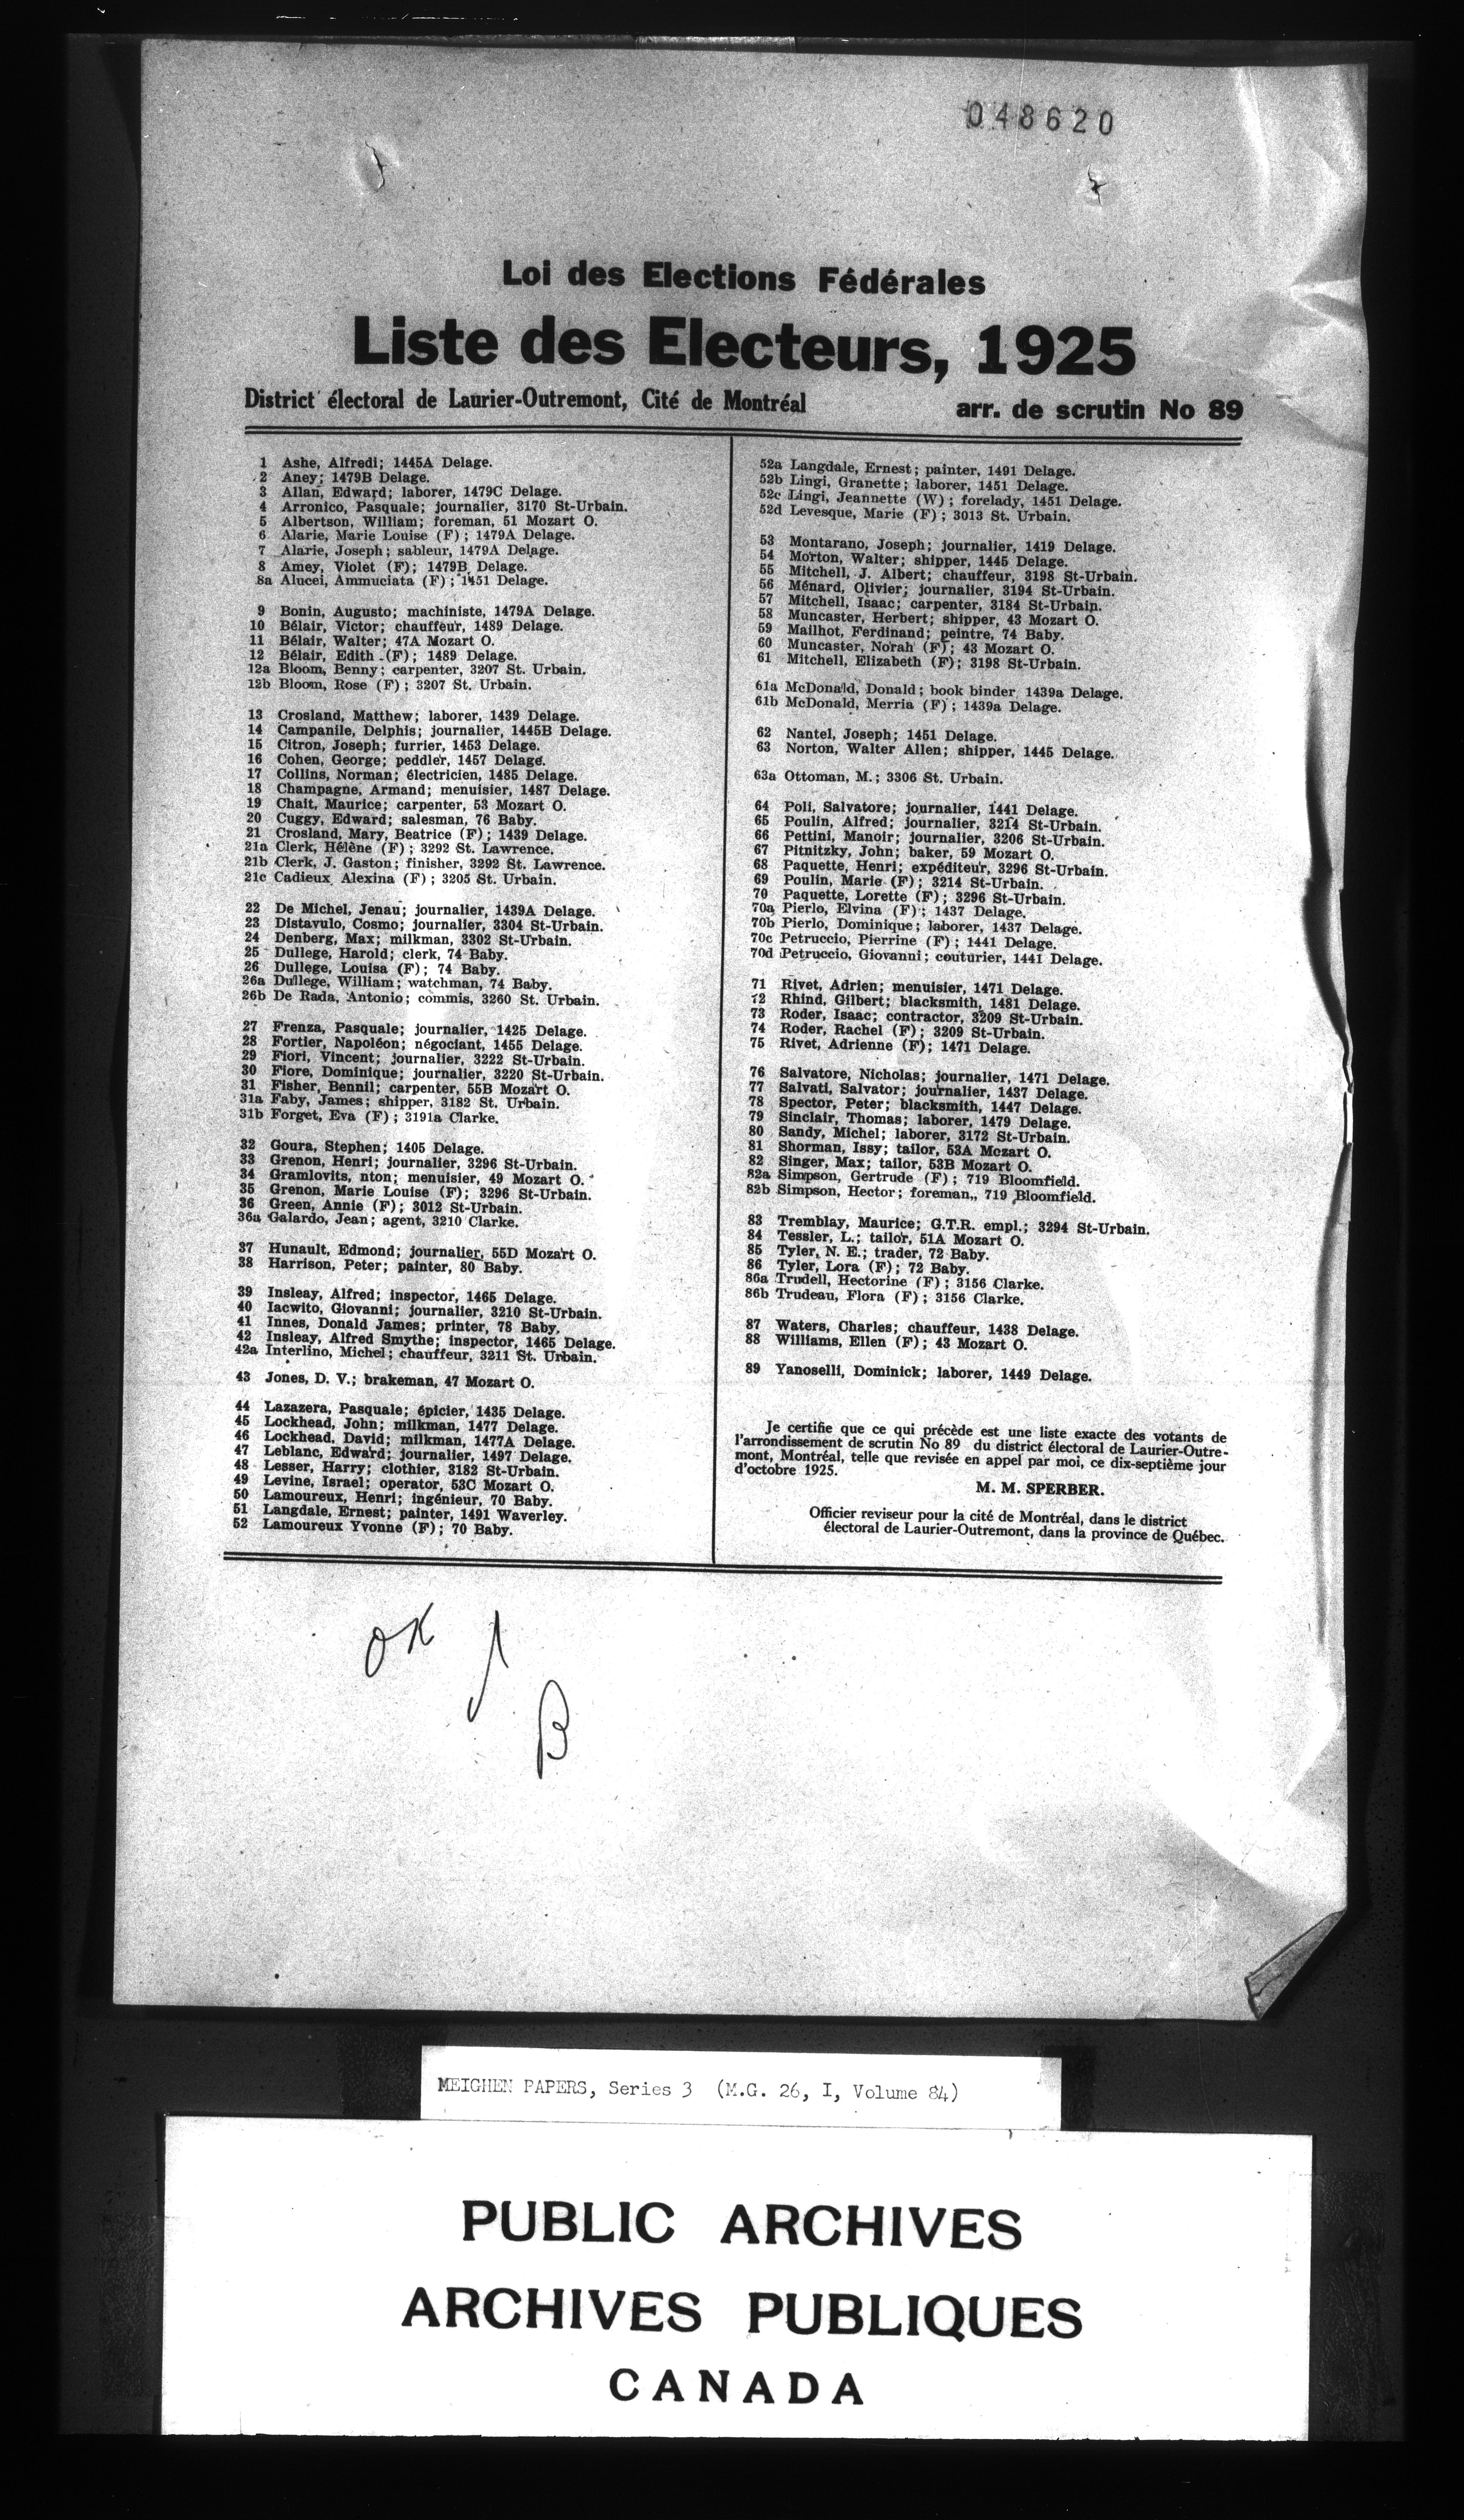 048620
Loi des Elections Fédérales
Liste des Electeurs, 1925
District électoral de Laurier-Outremont, Cité de Montréal
arr. de scrutin No 89
1 Ashe, Alfredi; 1445A Delage.
2 Aney; 1479B Delage.
3 Allan, Edward; laborer, 1479C Delage.
4 Arronico, Pasquale; journalier, 3170 St-Urbain.
5 Albertson, William; foreman, 51 Mozart O.
6 Alarie, Marie Louise (F); 1479A Delage.
7 Alarie, Joseph; sableur, 1479A Delage.
8 Amey, Violet (F); 1479B Delage.
8a Alucei, Ammuciata (F); 1451 Delage.
9 Bonin, Augusto; machiniste, 1479A Delage.
10 Bélair, Victor; chauffeur, 1489 Delage.
11 Bélair, Walter; 47A Mozart O.
12 Bélair, Edith (F); 1489 Delage.
12a Bloom, Benny; carpenter, 3207 St. Urbain.
12b Bloom, Rose (F); 3207 St. Urbain.
13 Crosland, Matthew; laborer, 1439 Delage.
14 Campanile, Delphis; journalier, 1445B Delage.
15 Citron, Joseph; furrier, 1453 Delage.
16 Cohen, George; peddler, 1457 Delage.
17 Collins, Norman; électricien, 1485 Delage.
18 Champagne, Armand; menuisier, 1487 Delage.
19 Chait, Maurice; carpenter, 53 Mozart O.
20 Cuggy, Edward; salesman, 76 Baby.
21 Crosland, Mary, Beatrice (F); 1439 Delage.
21a Clerk, Hélène (F); 3292 St. Lawrence.
21b Clerk, J. Gaston; finisher, 3292 St. Lawrence.
21c Cadieux, Alexina (F); 3205 St. Urbain.
22 De Michel, Jenau; journalier, 1439A Delage.
23 Distavulo, Cosmo; journalier, 3304 St-Urbain.
24 Denberg, Max; milkman, 3302 St-Urbain.
25 Dullege, Harold; clerk, 74 Baby.
26 Dullege, Louisa (F); 74 Baby.
26a Dullege, William; watchman, 74 Baby.
26b De Rada, Antonio; commis, 3260 St. Urbain.
27 Frenza, Pasquale; journalier, 1425 Delage.
28 Fortier, Napoléon; négociant, 1455 Delage.
29 Fiori, Vincent; journalier, 3222 St-Urbain.
30 Fiore, Dominique; journalier, 3220 St-Urbain.
31 Fisher, Bennil; carpenter, 55B Mozart O.
31a Faby, James; shipper, 3182 St. Urbain.
31b Forget, Eva (F); 3191a Clarke.
32 Goura, Stephen; 1405 Delage.
33 Grenon, Henri; journalier, 3296 St-Urbain.
34 Gramlovits, nton; menuisier, 49 Mozart O.
35 Grenon, Marie Louise (F); 3296 St-Urbain.
36 Green, Annie (F); 3012 St-Urbain.
36a Galardo, Jean; agent, 3210 Clarke.
37 Hunault, Edmond; journalier, 55D Mozart O.
38 Harrison, Peter; painter, 80 Baby.
39 Insleay, Alfred; inspector, 1465 Delage.
40 Iacwito, Giovanni; journalier, 3210 St-Urbain.
41 Innes, Donald James; printer, 78 Baby.
42 Insleay, Alfred Smythe; inspector, 1465 Delage.
42a Interlino, Michel; chauffeur, 3211 St. Urbain.
43 Jones, D. V.; brakeman, 47 Mozart O.
44 Lazazera, Pasquale; épicier, 1435 Delage.
45 Lockhead, John; milkman, 1477 Delage.
46 Lockhead, David; milkman, 1477A Delage.
47 Leblanc, Edward; journalier, 1497 Delage.
48 Lesser, Harry; clothier, 3182 St-Urbain.
49 Levine, Israel; operator, 53C Mozart O.
50 Lamoureux, Henri; ingénieur, 70 Baby.
51 Langdale, Ernest; painter, 1491 Waverley.
52 Lamoureux Yvonne (F); 70 Baby.
52a Langdale, Ernest; painter, 1491 Delage.
52b Lingi, Granette; laborer, 1451 Delage.
52c Lingi, Jeannette (W); forelady, 1451 Delage.
52d Levesque, Marie (F); 3013 St. Urbain.
53 Montarano, Joseph; journalier, 1419 Delage.
54 Morton, Walter; shipper, 1445 Delage.
55 Mitchell, J. Albert; chauffeur, 3198 St-Urbain.
56 Ménard, Olivier; journalier, 3194 St-Urbain.
57 Mitchell, Isaac; carpenter, 3184 St-Urbain.
58 Muncaster, Herbert; shipper, 43 Mozart O.
59 Mailhot, Ferdinand; peintre, 74 Baby.
60 Muncaster, Norah (F); 43 Mozart O.
61 Mitchell, Elizabeth (F); 3198 St-Urbain.
61a McDonald, Donald; book binder, 1439a Delage.
61b McDonald, Merria (F); 1439a Delage.
62 Nantel, Joseph; 1451 Delage.
63 Norton, Walter Allen; shipper, 1445 Delage.
63a Ottoman, M.; 3306 St. Urbain.
64 Poli, Salvatore; journalier, 1441 Delage.
65 Poulin, Alfred; journalier, 3214 St-Urbain.
66 Pettini, Manoir; journalier, 3206 St-Urbain.
67 Pitnitzky, John; baker, 59 Mozart O.
68 Paquette, Henri; expéditeur, 3296 St-Urbain.
69 Poulin, Marie (F); 3214 St-Urbain.
70 Paquette, Lorette (F); 3296 St-Urbain.
70a Pierlo, Elvina (F); 1437 Delage.
70b Pierlo, Dominique; laborer, 1437 Delage.
70c Petruccio, Pierrine (F); 1441 Delage.
70d Petruccio, Giovanni; couturier, 1441 Delage.
71 Rivet, Adrien; menuisier, 1471 Delage.
72 Rhind, Gilbert; blacksmith, 1481 Delage.
73 Roder, Isaac; contractor, 3209 St-Urbain.
74 Roder, Rachel (F); 3209 St-Urbain.
75 Rivet, Adrienne (F); 1471 Delage.
76 Salvatore, Nicholas; journalier, 1471 Delage.
77 Salvati, Salvator; journalier, 1437 Delage.
78 Spector, Peter; blacksmith, 1447 Delage.
79 Sinclair, Thomas; laborer, 1479 Delage.
80 Sandy, Michel; laborer, 3172 St-Urbain.
81 Shorman, Issy; tailor, 53A Mozart O.
82 Singer, Max; tailor, 53B Mozart O.
82a Simpson, Gertrude (F); 719 Bloomfield.
82b Simpson, Hector; foreman,, 719 Bloomfield.
83 Tremblay, Maurice; G.T.R. empl.; 3294 St-Urbain.
84 Tessler, L.; tailor, 51A Mozart O.
85 Tyler, N. E.; trader, 72 Baby.
86 Tyler, Lora (F); 72 Baby.
86a Trudell, Hectorine (F); 3156 Clarke.
86b Trudeau, Flora (F); 3156 Clarke.
87 Waters, Charles; chauffeur, 1438 Delage.
88 Williams, Ellen (F); 43 Mozart O.
89 Yanoselli, Dominick; laborer, 1449 Delage.
Je certifie que ce qui précède est une liste exacte des votants de
l'arrondissement de scrutin No 89 du district électoral de Laurier-Outre-
mont, Montréal, telle que revisée en appel par moi, ce dix-septième jour
d'octobre 1925.
M. M. SPERBER.
Officier reviseur pour la cité de Montréal, dans le district
électoral de Laurier-Outremont, dans la province de Québec.
OK
B
MEIGHEN PAPERS, Series 3 (M.G. 26, I, Volume 84)
PUBLIC ARCHIVES
ARCHIVES PUBLIQUES
CANADA